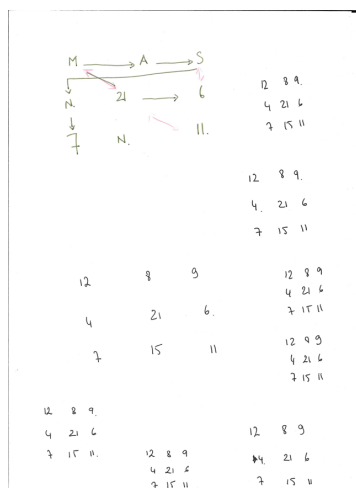 M A S
N. 21 6
7 N. 11.
12 8 9.
4 21 6
7 15 11
12 8 9.
4. 21 6
7 15 11
12 8 9
4 21 6.
7 15 11
12 8 9
4 21 6
7 15 11
12 8 9
4 21 6
7 15 11
12 8 9.
4 21 6
7 15 11.
12 8 9
4 21 6
7 15 11
12 8 9
4. 21 6
7 15 11